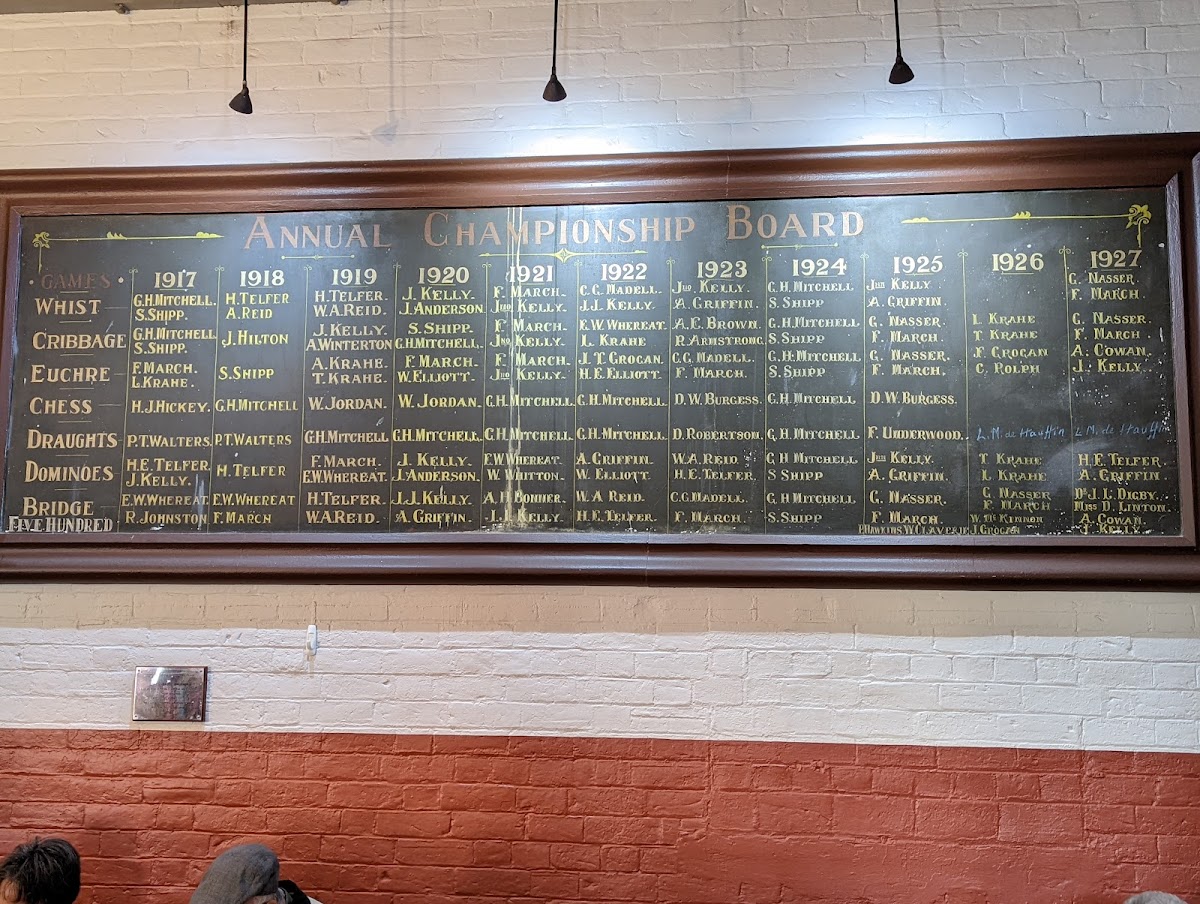 ANNUAL CHAMPIONSHIP BOARD
GAMES 1917 1918 1919 1920 1921 1922 1923 1924 1925 1926 1927
WHIST G.H.MITCHELL. H.TELFER H.TELFER. J.KELLY. F.MARCH. C.G.MADELL. JNO KELLY. G.H.MITCHELL JNO KELLY G.NASSER.
S.SHIPP. A.REID W.A.REID. J.ANDERSON JNO KELLY. J.J.KELLY. A.GRIFFIN. S.SHIPP A.GRIFFIN. F.MARCH.
CRIBBAGE G.H.MITCHELL J.HILTON J.KELLY. S.SHIPP. F.MARCH. E.W.WHEREAT. A.E.BROWN. G.H.MITCHELL G.NASSER. L.KRAHE G.NASSER.
S.SHIPP. A.WINTERTON G.H.MITCHELL. JNO KELLY. L.KRAHE R.ARMSTRONG. S.SHIPP F.MARCH. T.KRAHE F.MARCH.
EUCHRE F.MARCH. S.SHIPP A.KRAHE F.MARCH. F.MARCH. J.T.GROGAN. C.G.MADELL. G.H.MITCHELL G.NASSER. J.GROGAN A.COWAN.
L.KRAHE. T.KRAHE. W.ELLIOTT. JNO KELLY. H.E.ELLIOTT. F.MARCH. S.SHIPP F.MARCH. C.ROLPH J.KELLY.
CHESS H.J.HICKEY. G.H.MITCHELL W.JORDAN. W.JORDAN. G.H.MITCHELL. G.H.MITCHELL. D.W.BURGESS. G.H.MITCHELL D.W.BURGESS.
DRAUGHTS P.T.WALTERS. P.T.WALTERS G.H.MITCHELL G.H.MITCHELL. G.H.MITCHELL. G.H.MITCHELL. D.ROBERTSON. G.H.MITCHELL F.UNDERWOOD. L.M. de Hauffin L.M. de Hauffin
DOMINOES H.E.TELFER. H.TELFER F.MARCH. J.KELLY. E.W.WHEREAT. A.GRIFFIN. W.A.REID. G.H.MITCHELL JNO KELLY. T.KRAHE H.E.TELFER.
J.KELLY. E.W.WHEREAT. J.ANDERSON. W.WHITTON. W.ELLIOTT. H.E.TELFER. S.SHIPP A.GRIFFIN. L.KRAHE A.GRIFFIN.
BRIDGE E.W.WHEREAT. E.W.WHEREAT H.TELFER. J.J.KELLY. A.H.BONNER. W.A.REID. C.G.MADELL. G.H.MITCHELL G.NASSER. G.NASSER DR J.L.DIGBY.
R.JOHNSTON F.MARCH W.A.REID. A.GRIFFIN. J.J.KELLY. H.E.TELFER. F.MARCH. S.SHIPP F.MARCH. F.MARCH MISS D.LINTON.
FIVE HUNDRED W.MCKINNON A.COWAN.
P.HAWKINS.W.CLAVERIE.J.GROGAN J.KELLY.